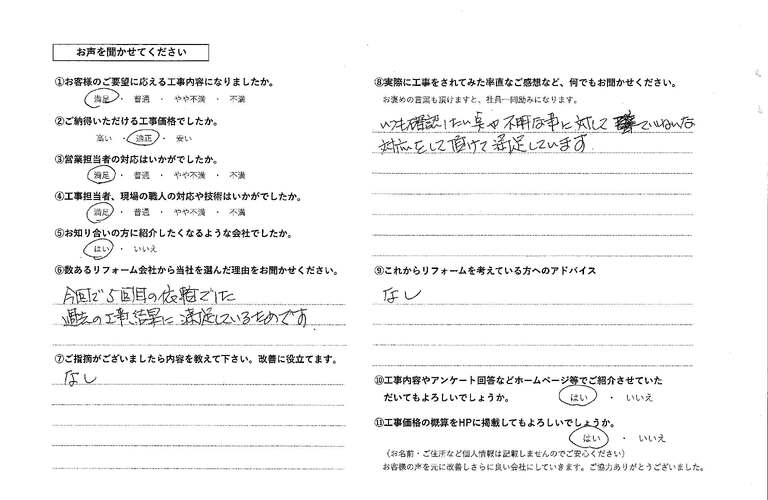 お声を聞かせてください
①お客様のご要望に応える工事内容になりましたか。
満足 ・ 普通 ・ やや不満 ・ 不満
②ご納得いただける工事価格でしたか。
高い ・ 適正 ・ 安い
③営業担当者の対応はいかがでしたか。
満足 ・ 普通 ・ やや不満 ・ 不満
④工事担当者、現場の職人の対応や技術はいかがでしたか。
満足 ・ 普通 ・ やや不満 ・ 不満
⑤お知り合いの方に紹介したくなるような会社でしたか。
はい ・ いいえ
⑥数あるリフォーム会社から当社を選んだ理由をお聞かせください。
今回で5回目の依頼でした
過去の工事結果に満足しているためです
⑦ご指摘がございましたら内容を教えて下さい。改善に役立てます。
なし
⑧実際に工事をされてみた率直なご感想など、何でもお聞かせください。
お褒めの言葉も頂けますと、社員一同励みになります。
いつも確認したい点や不明な事に対して ていねいな
対応をして頂けて満足しています.
⑨これからリフォームを考えている方へのアドバイス
なし
⑩工事内容やアンケート回答などホームページ等でご紹介させていた
だいてもよろしいでしょうか。 はい ・ いいえ
⑪工事価格の概算をHPに掲載してもよろしいでしょうか。
はい ・ いいえ
（お名前・ご住所など個人情報は記載しませんのでご安心ください）
お客様の声を元に改善しさらに良い会社にしていきます。ご協力ありがとうございました。